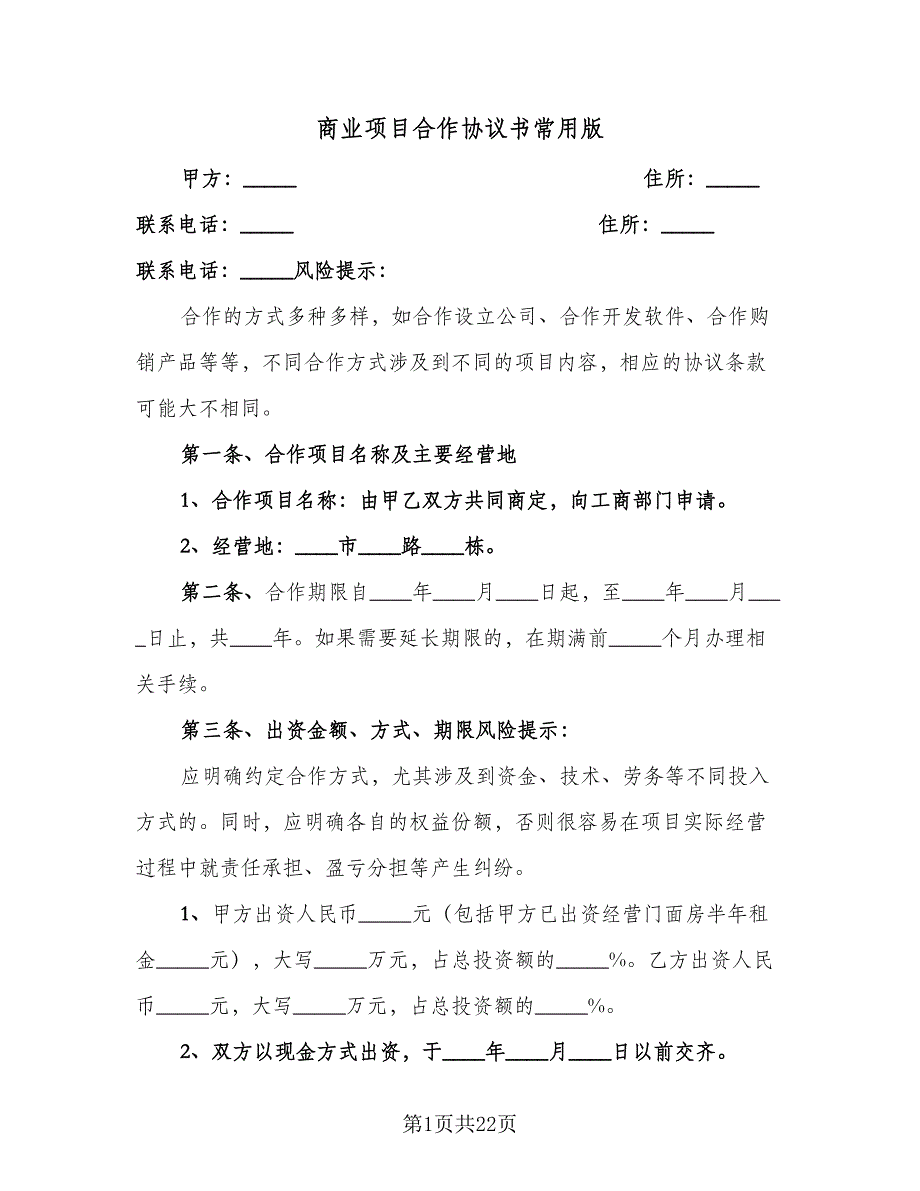 商业项目合作协议书常用版
甲方：_____ 住所：_____
联系电话：_____ 住所：_____
联系电话：_____风险提示：
合作的方式多种多样，如合作设立公司、合作开发软件、合作购
销产品等等，不同合作方式涉及到不同的项目内容，相应的协议条款
可能大不相同。
第一条、合作项目名称及主要经营地
1、合作项目名称：由甲乙双方共同商定，向工商部门申请。
2、经营地：____市____路____栋。
第二条、合作期限自____年____月____日起，至____年____月___
_日止，共____年。如果需要延长期限的，在期满前_____个月办理相
关手续。
第三条、出资金额、方式、期限风险提示：
应明确约定合作方式，尤其涉及到资金、技术、劳务等不同投入
方式的。同时，应明确各自的权益份额，否则很容易在项目实际经营
过程中就责任承担、盈亏分担等产生纠纷。
1、甲方出资人民币_____元（包括甲方已出资经营门面房半年租
金_____元），大写_____万元，占总投资额的_____%。乙方出资人民
币_____元，大写_____万元，占总投资额的_____%。
2、双方以现金方式出资，于____年____月____日以前交齐。
第1页共22页